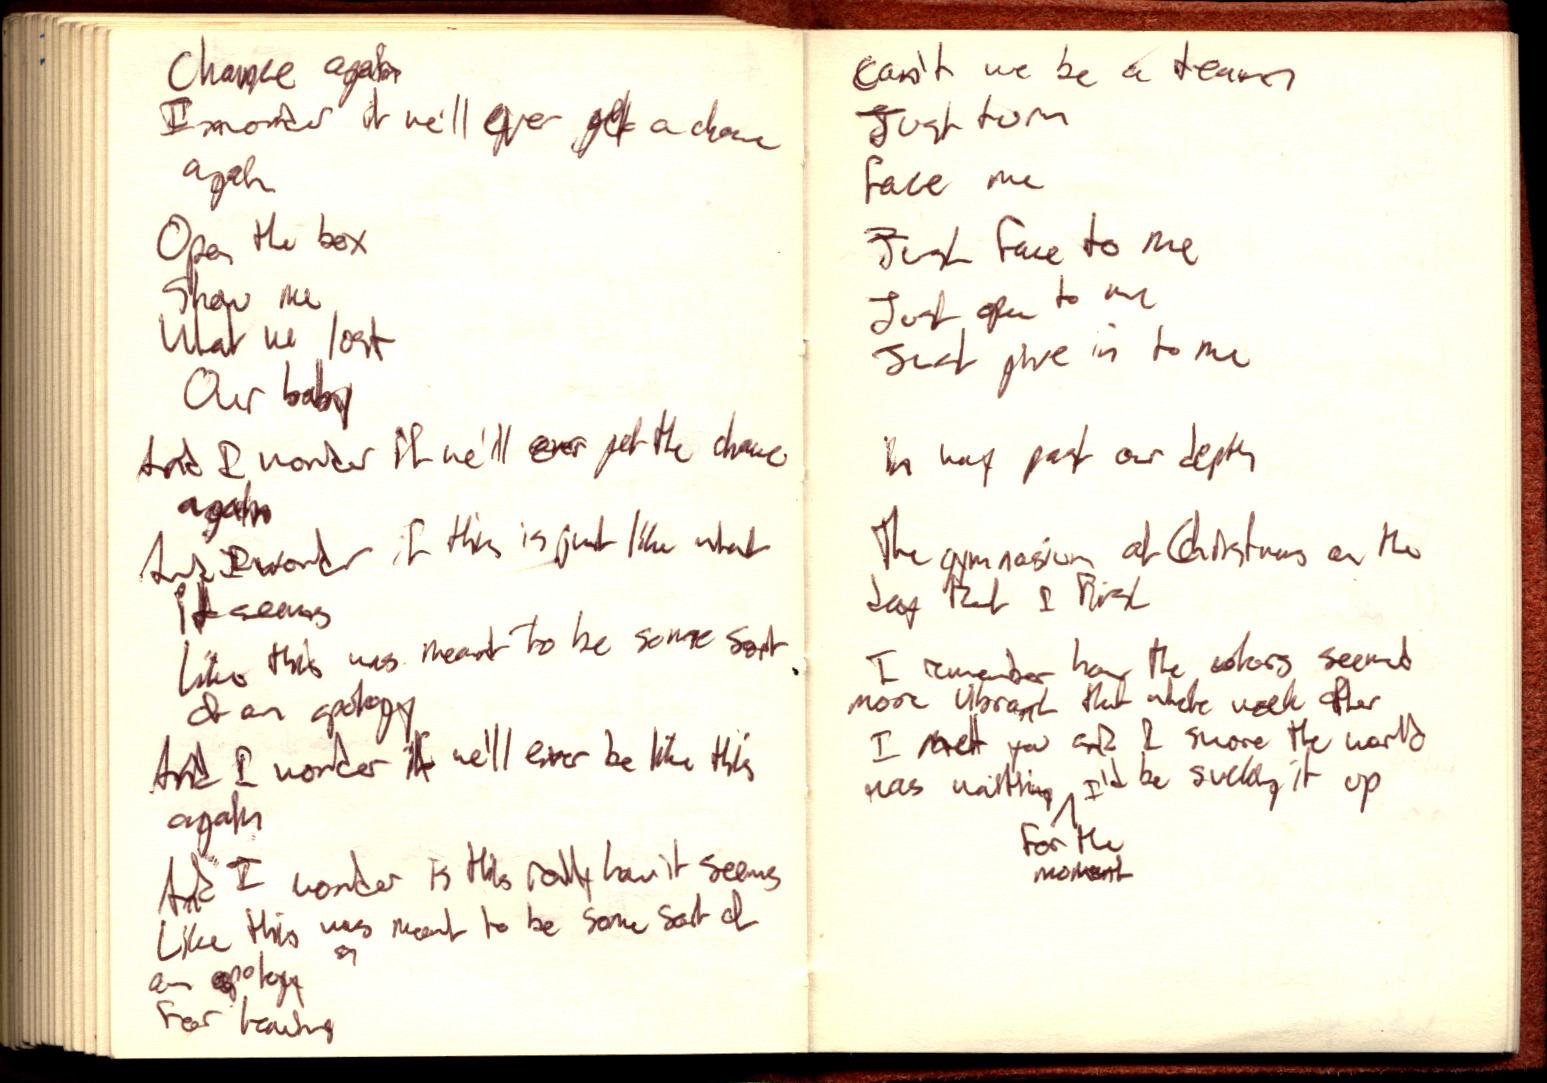 Chance again
I wonder if we'll ever get a chance
again
Open the box
Show me
What we lost
Our baby
And I wonder if we'll ever get the chance
again
And I wonder if this is just like what
it seems
Like this was meant to be some sort
of an apology
And I wonder if we'll ever be like this
again
And I wonder is this really how it seems
Like this was meant to be some sort of
an apology
For leaving
Can't we be a team
Just turn
face me
Just face to me
Just open to me
Just give in to me
In way past our depth
The gymnasium at Christmas on the
day that I first
I remember how the colors seemed
more vibrant that whole week after
I met you and I swore the world
was waiting I'd be sucking it up
For the
moment